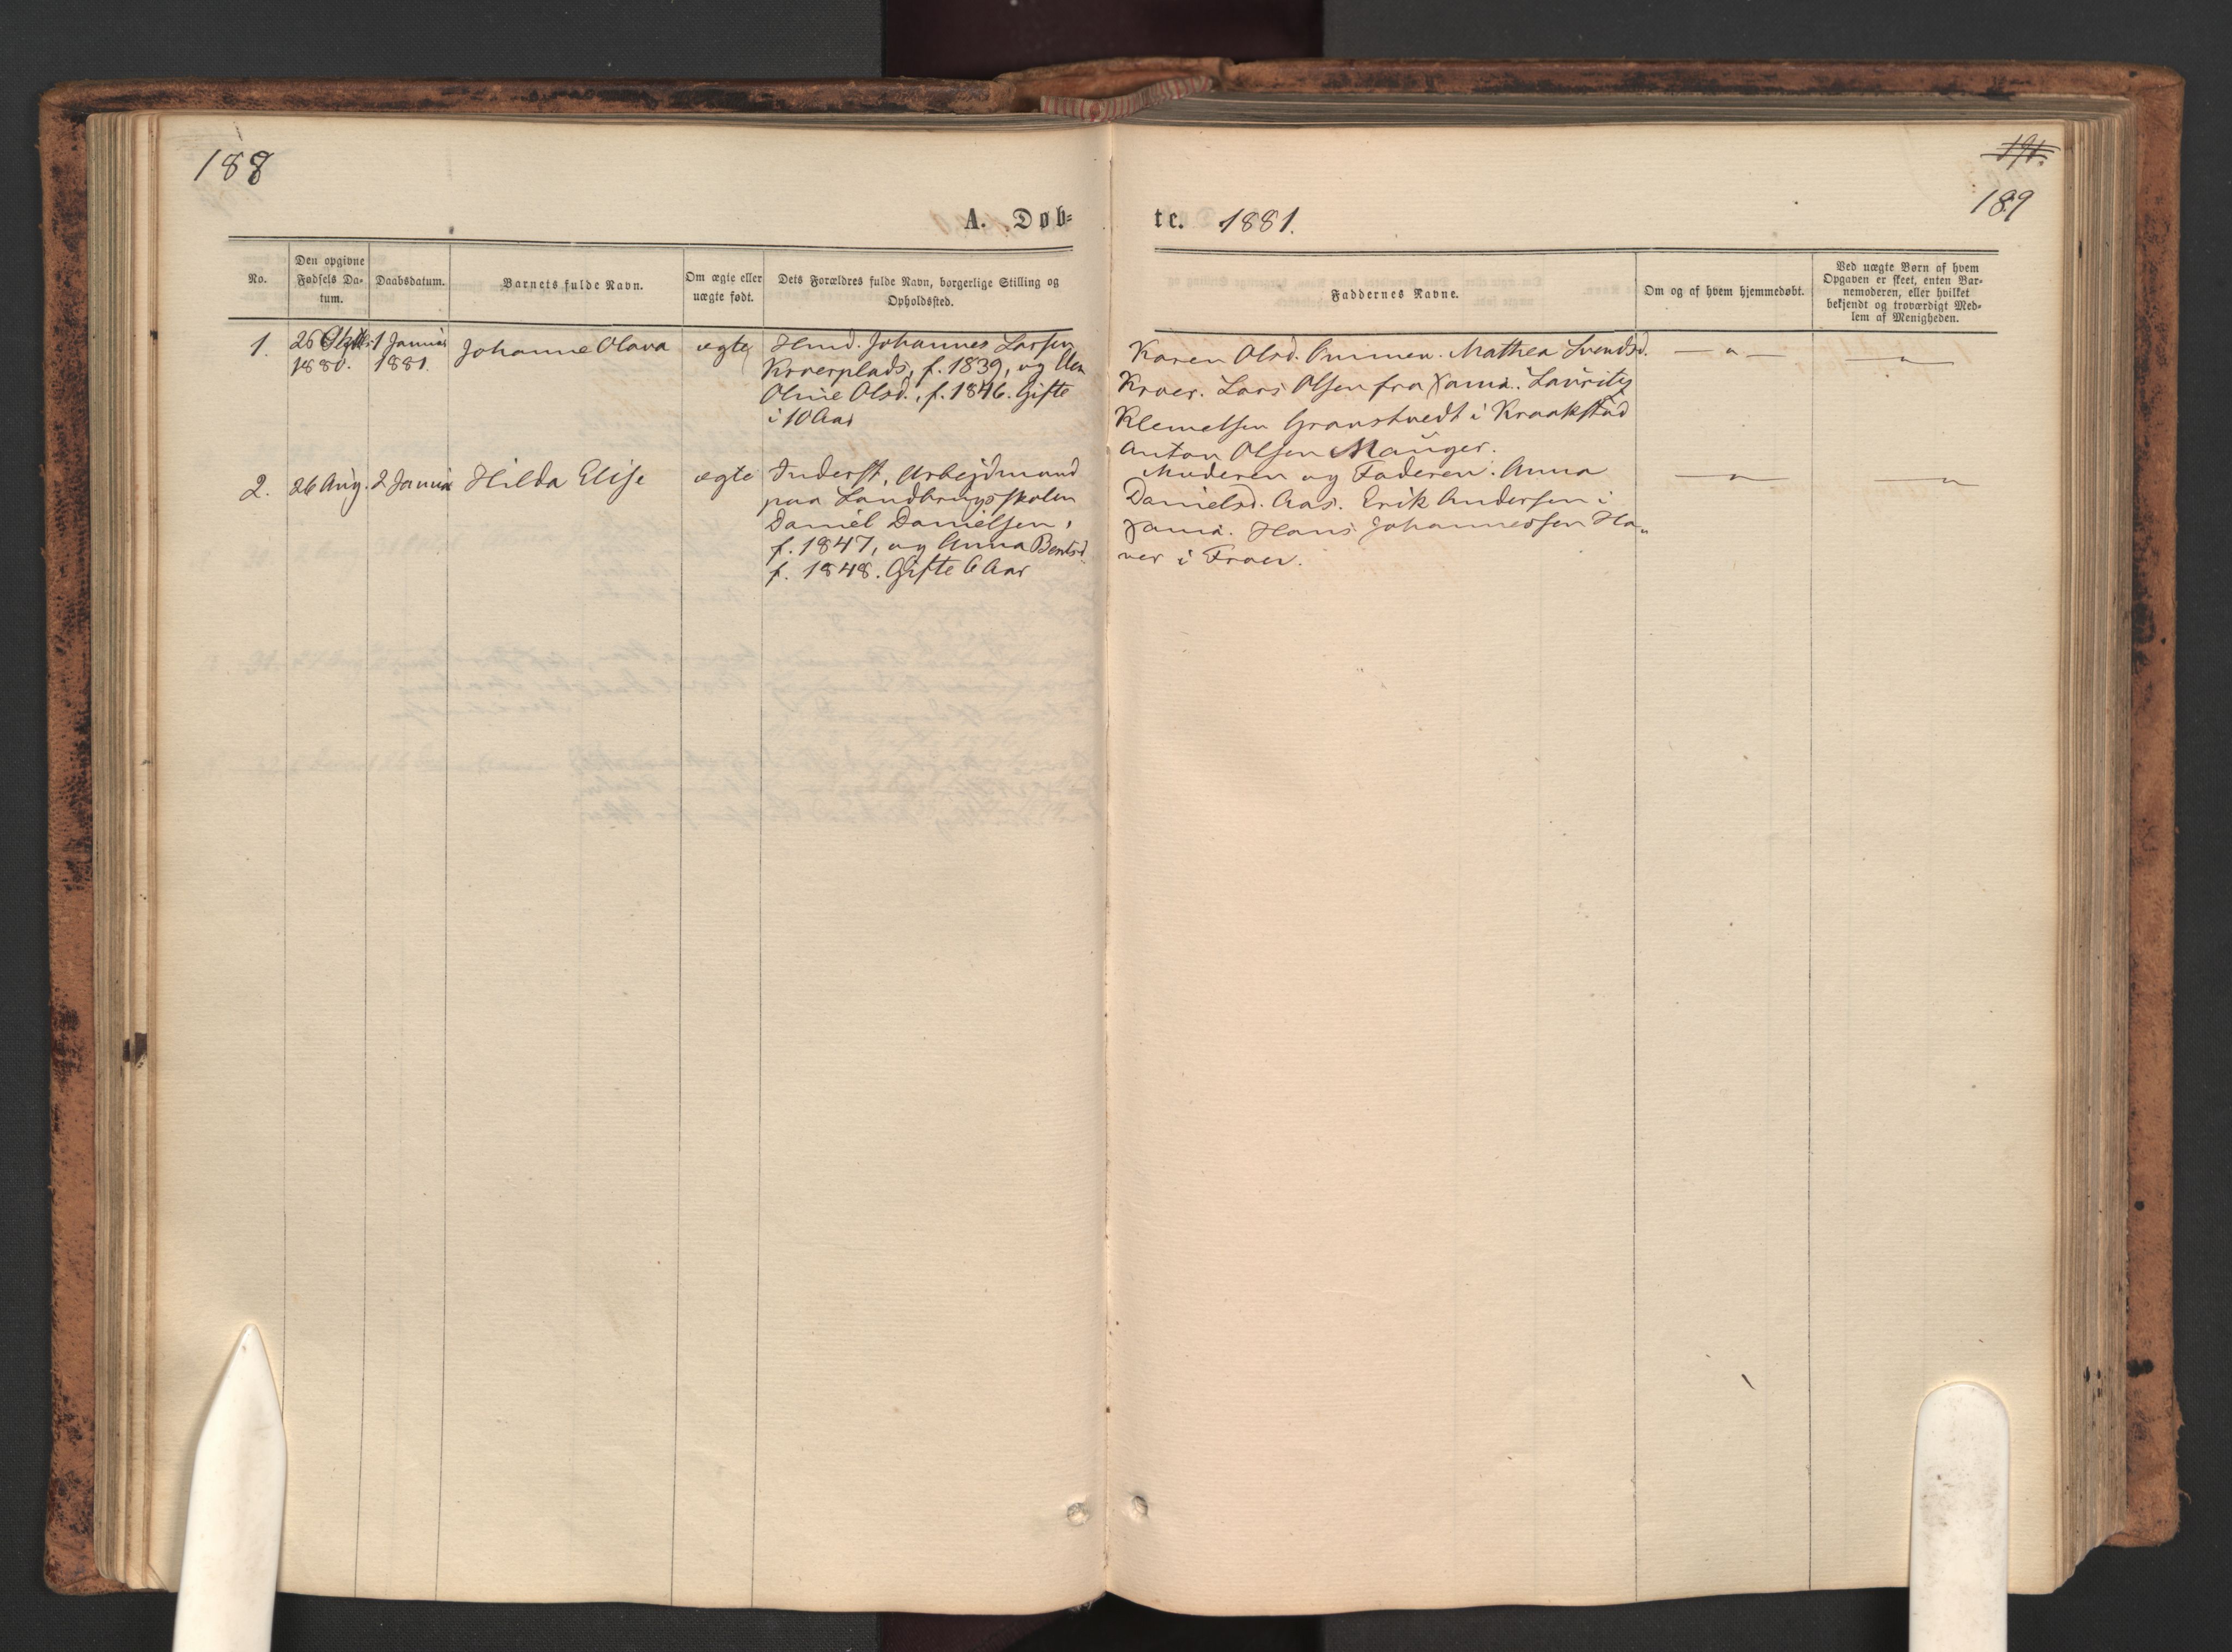 188
191.
189
A. Døb=
te. 1881.
No.
Den opgivne Fødsels Da-
tum.
Daabsdatum.
Barnets fulde Navn.
Om ægte eller
uægte født.
Dets Forældres fulde Navn, borgerlige Stilling og
Opholdssted.
Faddernes Navne.
Om og af hvem hjemmedøbt.
Ved uægte Børn af hvem
Opgaven er skeet, enten Bar-
nemoderen, eller hvilket
bekjendt og troværdigt Med-
lem af Menigheden.
1.
26
1880.
1 Januar
1881.
Johanne Olava
ægte
Hmd. Johannes Larsen
Kroerplads, f. 1839, og
Oline Olsd., f. 1846. Gifte
i 10 Aar
Karen Olsd. Mathea Svendsd.
Kroer. Lars Olsen fra Xania. Lauritz
Klemetsen Granstvedt i Kraakstad
Anton Olsen Manger.
— „ —
— „ —
2.
26 Aug.
2 Januar
Hilda Elise
ægte
Inderst, Arbejdmand
paa Landbrugsskolen
Daniel Danielsen,
f. 1847, og Anna Berntsd.
f. 1848. Gifte 6 Aar
Moderen og Faderen. Anna
Danielsd. Aas. Erik Andersen i
Xania. Hans Johannessen Ha-
ver i Froen.
— „ —
— „ —